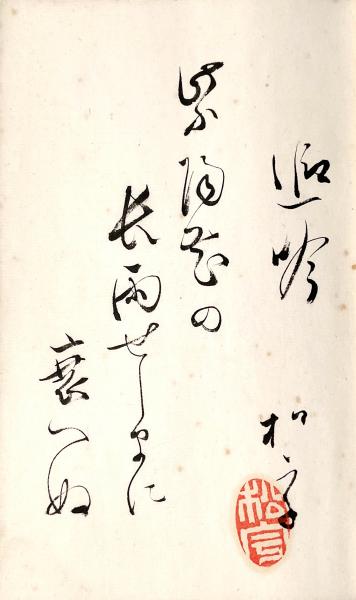 近吟
松宇
松宇
紫陽花の
長雨せしまに
衰へぬ